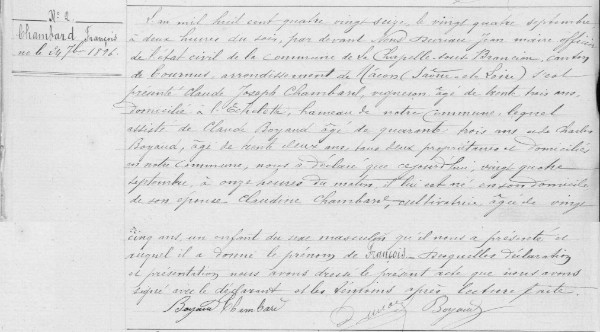 N° 2
Chambard François
né le 24 7bre 1896.
L'an mil huit cent quatre vingt seize, le vingt quatre septembre
à deux heures du soir, par devant Nous Jean maire officier
de l'état civil de la Commune de La Chapelle-sous-Brancion, canton
de Tournus, arrondissement de Mâcon (Saône-et-Loire) s'est
présenté Claude Joseph Chambard, vigneron âgé de trente trois ans,
domicilié à l'Echelette, hameau de notre Commune, lequel
assisté de Claude Boyaud âgé de quarante trois ans et de Charles
Boyaud, âgé de trente deux ans tous deux propriétaires et domiciliés
en notre Commune, nous a déclaré que cejourd'hui, vingt quatre
septembre, à onze heures du matin, il lui est né en son domicile
de son épouse Claudine Chambard, cultivatrice, âgée de vingt
cinq ans un enfant du sexe masculin qu'il nous a présenté et
auquel il a donné le prénom de François. Lesquelles déclaration
et présentation nous avons dressé le présent acte que nous avons
signé avec le déclarant et les témoins après lecture faite.
Boyaud Chambard Boyaud